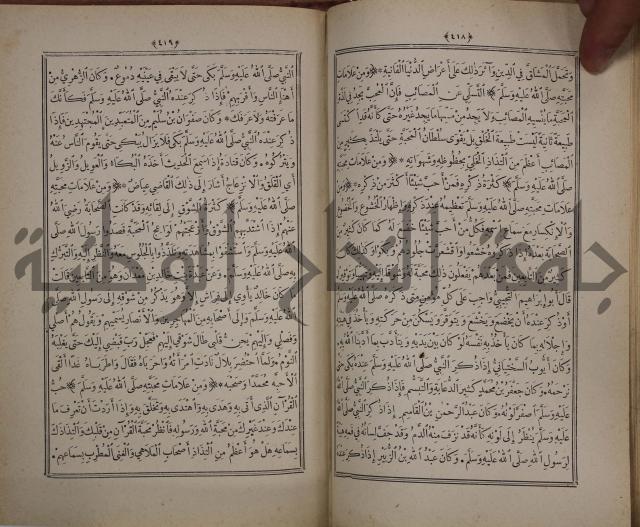 ﴿٤١٨﴾
وتحمل المشاق في الدين وآثر ذلك على أعراض الدنيا الفانية * ومن علامات
محبته صلى الله عليه وسلم التسلي عن المصائب فإن المحب يجد في لذة
المحبة ما ينسيه المصائب ولا يجد من مسها ما يجد غيره حتى كأنه قد اكتسى
طبيعة ثانية ليست طبيعة الخلق بل يقوى سلطان المحبة حتى يلتذ بكثير من
المصائب أعظم من التذاذ الخلي بحظوظه وشهواته * ومن علامات محبته
صلى الله عليه وسلم كثرة ذكره فمن أحب شيئا أكثر من ذكره * ومن
علامات محبته صلى الله عليه وسلم تعظيمه عند ذكره وإظهار الخشوع والخضوع
والانكسار مع سماع اسمه فكل من أحب شيئا خضع له كما كان كثير من
الصحابة بعده إذا ذكروه خشعوا واقشعرت جلودهم وبكوا وكذلك كان
كثير من التابعين فمن بعدهم يفعلون ذلك محبة له وشوقا إليه وتهيبا وتوقيرا
قال أبو إبراهيم التجيبي واجب على كل مؤمن متى ذكره صلى الله عليه وسلم
أو ذكر عنده أن يخضع ويخشع ويتوقر ويسكن من حركته ويأخذ في هيبته
وإجلاله بما كان يأخذ به نفسه لو كان بين يديه ويتأدب بما أدبنا الله به
وكان أيوب السختياني إذا ذكر النبي صلى الله عليه وسلم عنده بكى حتى
نرحمه وكان جعفر بن محمد كثير الدعابة والتبسم فإذا ذكر النبي صلى الله
عليه وسلم اصفر لونه وكان عبد الرحمن بن القاسم إذا ذكر النبي صلى الله
عليه وسلم ينظر إلى لونه كأنه قد نزف منه الدم وقد جف لسانه في فمه هيبة
لرسول الله صلى الله عليه وسلم . وكان عبد الله بن الزبير إذا ذكر عنده
﴿٤١٩﴾
النبي صلى الله عليه وسلم بكى حتى لا يبقى في عينيه دموع . وكان الزهري من
أهنإ الناس وأقربهم فإذا ذكر عنده النبي صلى الله عليه وسلم فكأنك
ما عرفته ولا عرفك * وكان صفوان بن سليم من المتعبدين المجتهدين فإذا
ذكر عنده النبي صلى الله عليه وسلم بكى فلا يزال يبكي حتى يقوم الناس عنه
ويتركوه . وكان قتادة إذا سمع الحديث أخذه البكاء والعويل والزويل
أي القلق والانزعاج أشار إلى ذلك القاضي عياض * ومن علامات محبته
صلى الله عليه وسلم كثرة الشوق إلى لقائه وقد كانت الصحابة رضي الله
عنهم إذا اشتد بهم الشوق وأزعجتهم لواعج المحبة قصدوا رسول الله صلى
الله عليه وسلم واستشفوا بمشاهدته وتلذذوا بالجلوس معه والنظر إليه والتبرك
به صلى الله عليه وسلم . وعن عبدة بنت خالد بن معدان قالت
كان خالد يأوي إلى فراش إلا وهو يذكر من شوقه إلى رسول الله صلى
الله عليه وسلم وإلى أصحابه من المهاجرين والأنصار يسميهم ويقول هم أصلي
وفصلي وإليهم يحن قلبي طال شوقي إليهم فعجل رب قبضي إليك حتى يغلبه
النوم . ولما احتضر بلال نادت امرأته واحرباه فقال واطرباه غدا ألقى
الأحبه محمدا وصحبه * ومن علامات محبته صلى الله عليه وسلم حب
القرآن الذي أتى به وهدى به واهتدى به وتخلق به وإذا أردت أن تعرف ما
عندك وعند غيرك من محبة الله ورسوله فانظر محبة القرآن من قلبك والتذاذك
بسماعه هل هو أعظم من التذاذ أصحاب الملاهي والغنى المطرب بسماعهم .
جامعة النجاح الوطنية